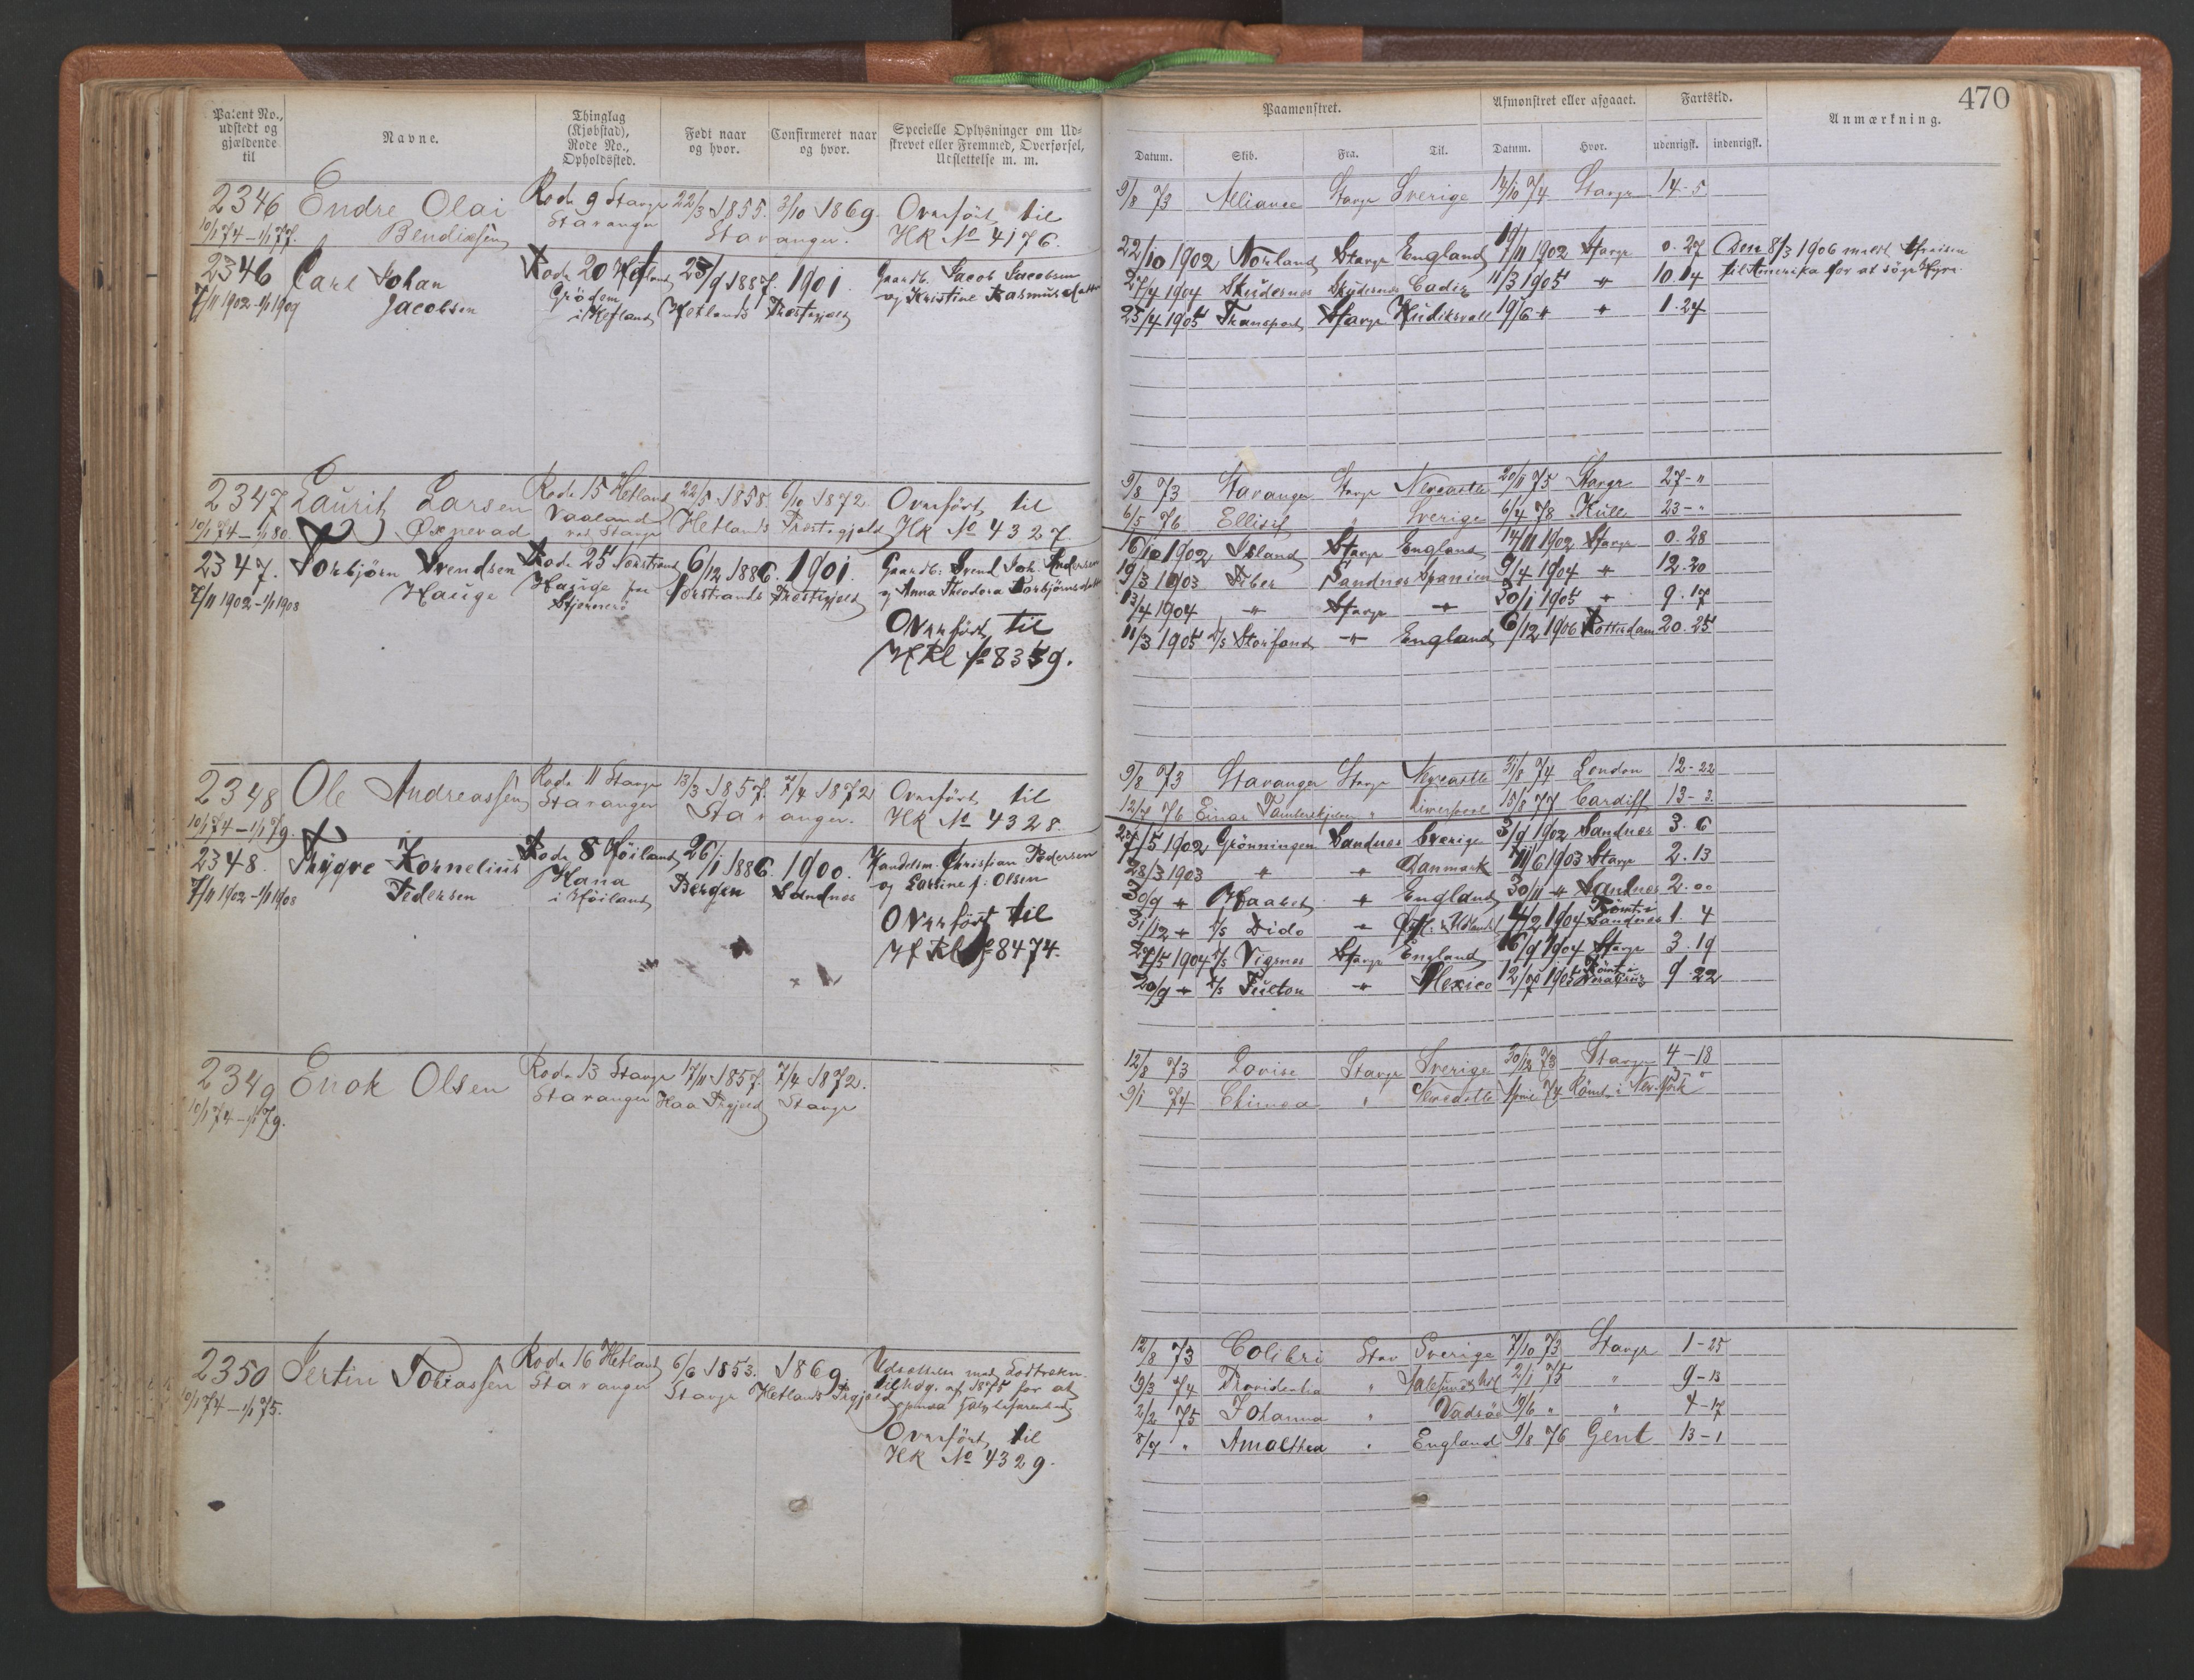 Patent No., udstedt og gjældende til
Navne.
Thinglag (Kjøbstad), Rode No., Opholdssted.
Født naar og hvor.
Confirmeret naar og hvor.
Specielle Oplysninger om Udskrevet eller Fremmed, Overførsel, Udslettelse m. m.
Paamønstret.
Afmønstret eller afgaaet.
Fartstid.
Anmærkning.
470
Datum. Skib. Fra. Til. Datum. Hvor. udenrigsk. indenrigsk.
2346 Endre Olai Rode 9 Stavgr 22/3 1855. 3/10 1869. Overført til
10/1 74 – 1/1 77. Bendixsen Stavanger Stavanger. HK No 4176.
9/8 73 Alliance Stavgr Sverige 14/10 74 Stavgr 14-5
2346 Carl Johan Rode 20 Hetland 23/9 1887. 1901. Gaardb. Jacob Jacobsen
7/11 1902 - 1/1 1909 Jacobsen Grødem i Hetland Hetlands Præstegjeld og Kristine Rasmusdatter
22/10 1902 Norland Stavgr England 19/11 1902 Stavgr 0. 27 Den 8/3 1906 meldt Afreisen
27/4 1904 Skudesnes Skudesnes Cadiz 11/3 1905 " 10. 14 til Amerika for at søge Hyre.
25/4 1905 Transport Stavgr Hudiksvall 19/6 " " 1. 24
2347 Laurits Larsen Rode 15 Hetland 22/5 1858. 6/10 1872. Overført til
10/1 74 – 1/1 80. Oxnevad Vaaland ved Stavgr Hetlands Præstegjeld HK No 4327.
9/8 73 Stavanger Stavgr Newcastle 20/11 75 Stavgr 27-"
6/5 76 Ellisif " Sverige 6/4 78 Hull 23-"
2347. Torbjørn Svendsen Rode 25 Nerstrand 6/12 1886. 1901. Gaardb: Svend Joh. Andersen
7/11 1902 - 1/1 1908 Hauge Hauge paa Stjernerø Nerstrands Præstegjeld og Anna Theodora Torbjørnsdatter
Overført til
HKl No 8359.
16/10 1902 Island Stavgr England 14/11 1902 Stavgr 0. 28
19/3 1903 Tiber Sandnes Spanien 9/4 1904 " 12. 20
13/4 1904 " Stavgr " 30/1 1905 " 9. 17
11/3 1905 D/S Storfond " England 6/12 1906 Rotterdam 20. 25
2348 Ole Andreassen Rode 11 Stavgr 13/3 1857. 7/4 1872 Overført til
10/1 74 – 1/1 79. Stavanger Stavanger. HK No 4328.
9/8 73 Stavanger Stavgr Newcastle 31/8 74 London 12-22
12/2 76 Einar Tamberskjelver " Liverpool 15/8 77 Cardiff 13-3.
2348. Trygve Kornelius Rode 8 Høiland 26/1 1886. 1900. Handelsm. Christian Pedersen
7/11 1902 - 1/1 1908 Pedersen Hana i Høiland Bergen Sandnes og f: Olsen
Overført til
HKl No 8474.
27/5 1902 Grønningen Sandnes Sverige 3/9 1902 Sandnes 3. 6
28/3 1903 " " Danmark 11/6 1903 Stavgr 2. 13
30/9 " Haabet " England 30/11 " Sandnes 2. 00
31/12 " D/S Dido " 4/2 1904 Rømt i Sandnes 1. 4
27/5 1904 D/S Vigsnes Stavgr England 16/9 1904 Stavgr 3. 19
20/9 " D/S Fulton " Mexico 12/7 1905 Rømt i Veracruz 9. 22
2349 Enok Olsen Rode 13 Stavgr 17/11 1857. 7/4 1872.
10/1 74 – 1/1 79. Stavanger Haa Prgjeld Stavgr
12/8 73 Lovise Stavgr Sverige 30/12 73 Stavgr 4-18
9/1 74 Chimea " Newcastle April 74 Rømt i New-York
2350 Jertin Tobiassen Rode 16 Hetland 6/6 1853. 1869. Udsættelse med Lodtrækn.
10/1 74 – 1/1 75. Stavanger Stavgr Hetlands Prgjeld til Udg. af 1875 for at
Overført til
HK No 4329.
12/8 73 Colibri Stav Sverige 7/10 73 Stavgr 1-25
19/3 74 Providentia " 2/1 75 " 9-13
2/2 75 Johanna " Vadsø 19/6 " " 4-17
8/7 " Amalthea " England 9/8 76 Gent 13-1